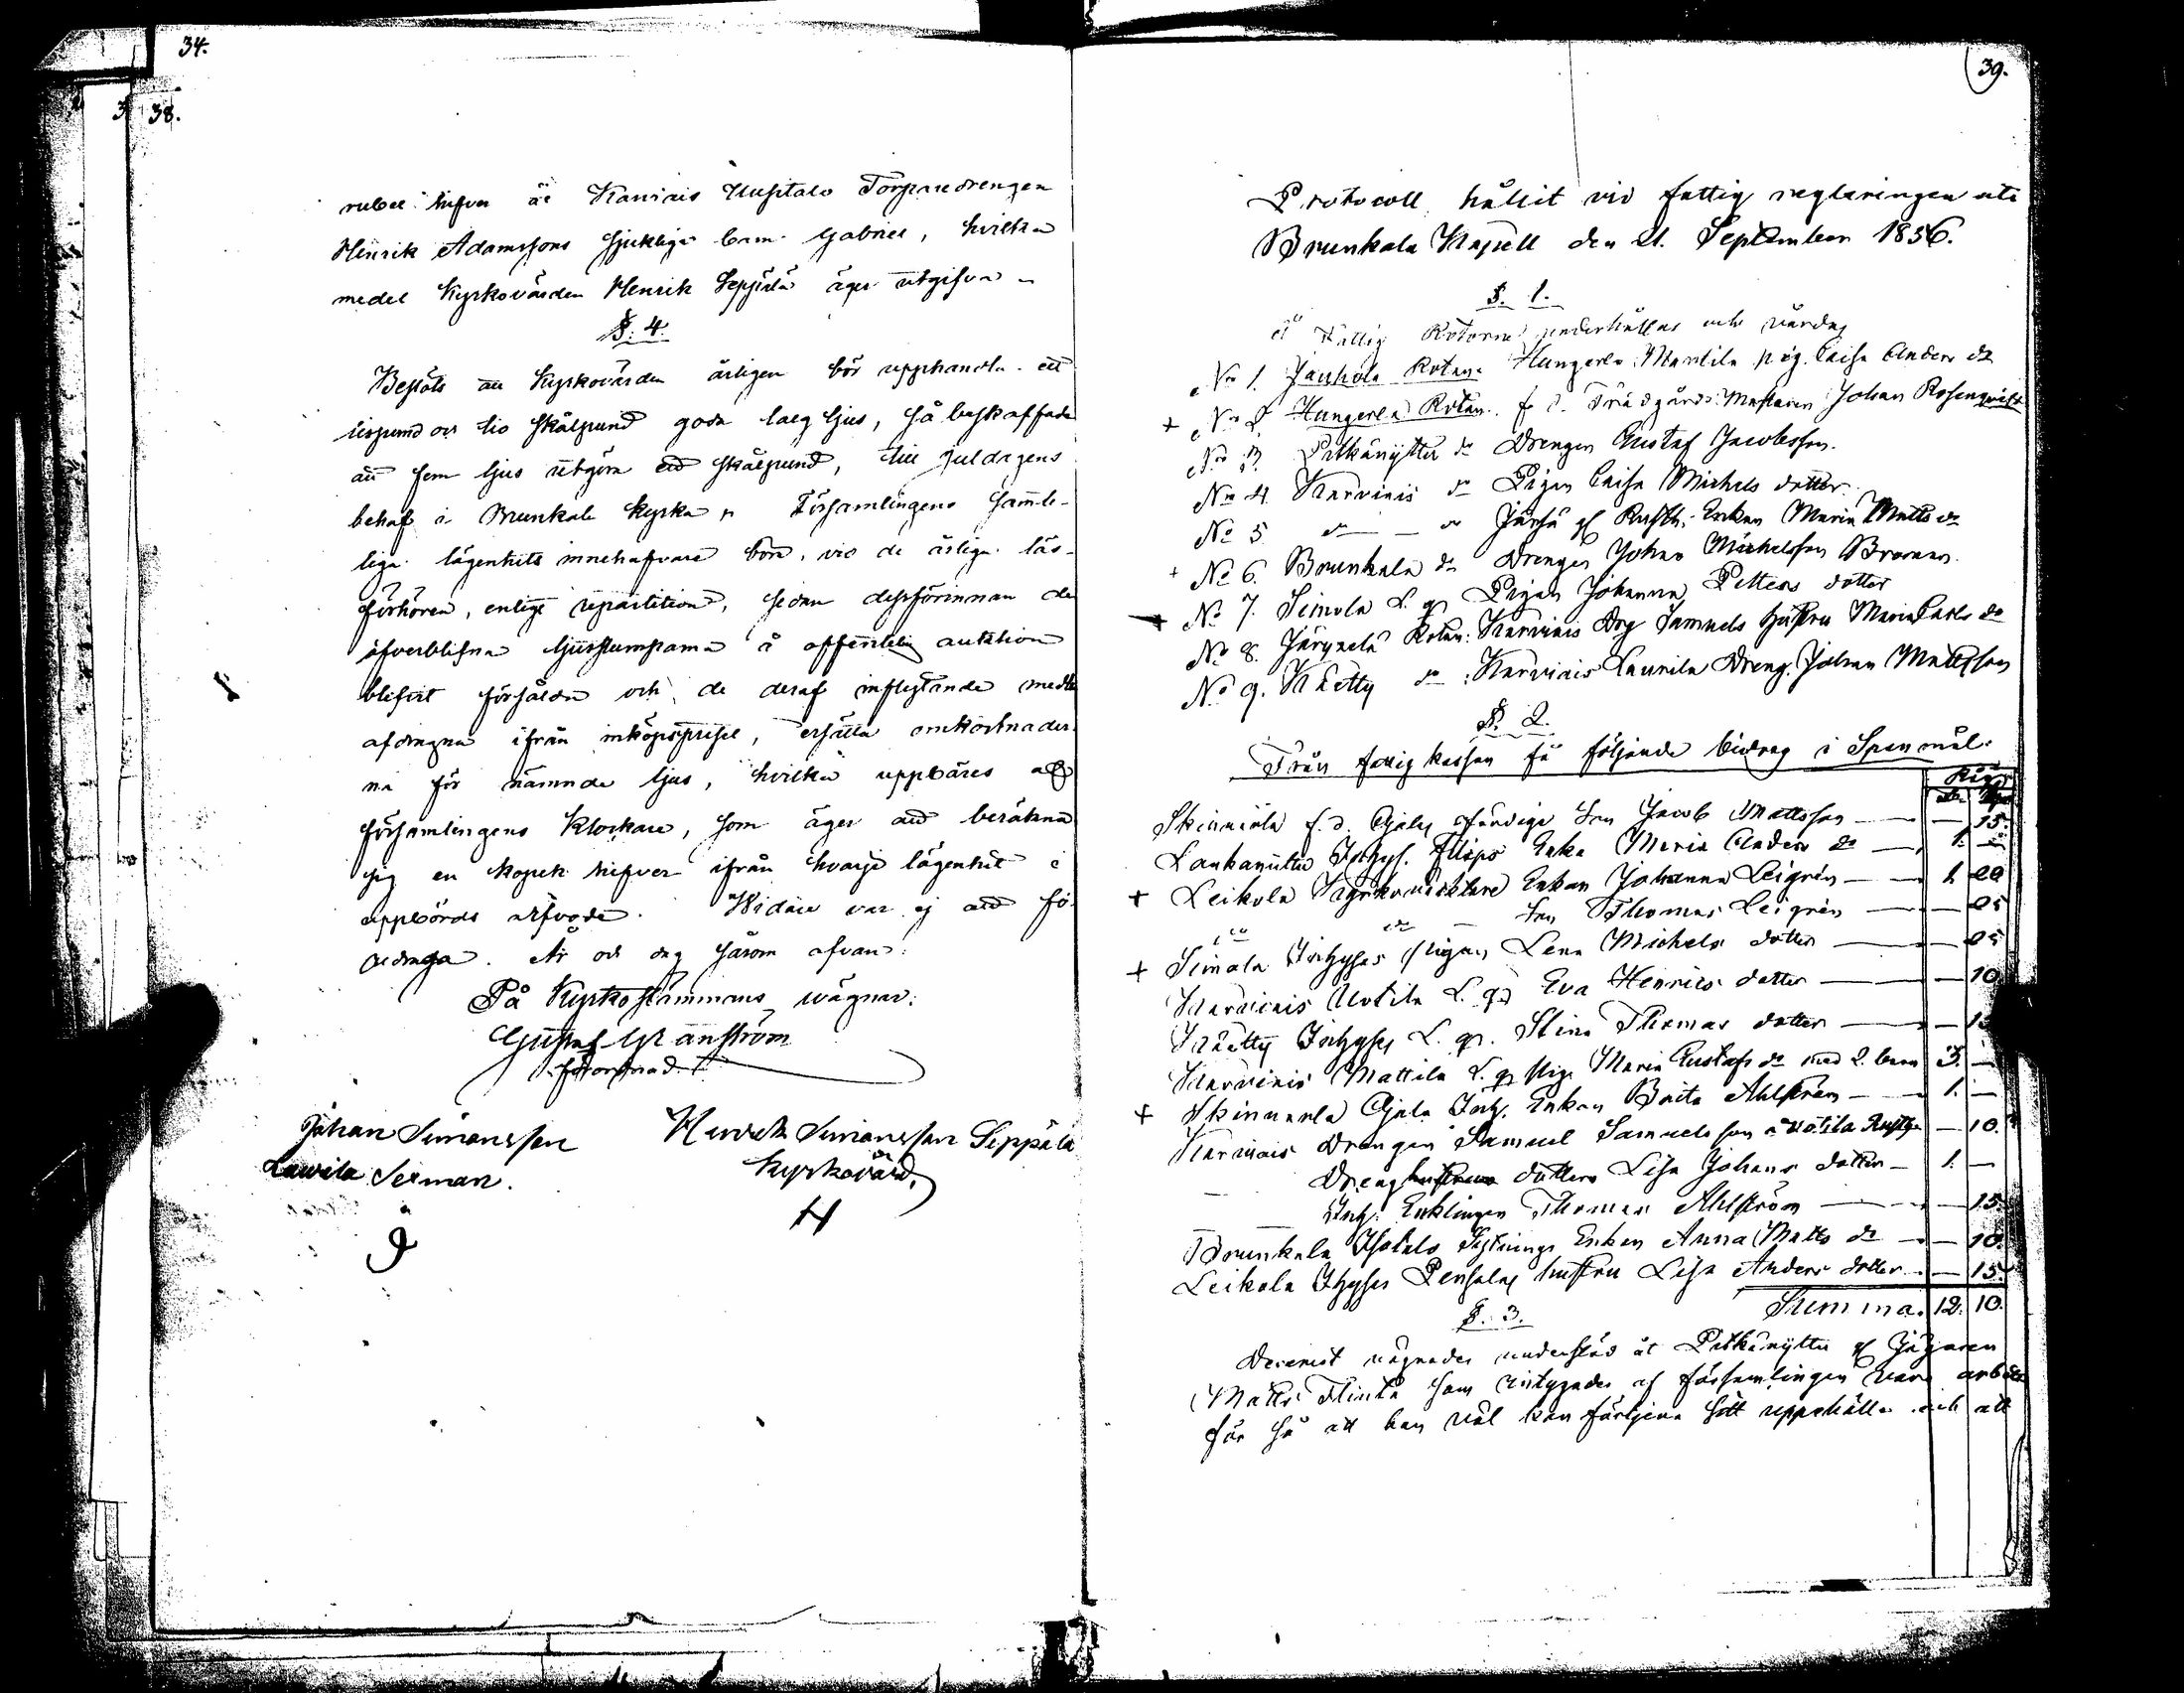 34.
38.
rubel silfver åt Karviais Uusitalo Torparedrengen
Henrik Adamssons sjukliga barn Gabriel, hvilka
medel Kyrkovärden Henrik Seppälä äger utgifva
§. 4.
Beslöts att Kyrkovärden årligen bör upphandla ett
lispund och tio skålpund goda talg ljus, så beskaffade
att fem ljus utgöra ett skålpund, till Juldagens
behof i Brunkala kyrka Församlingens samte-
liga lägenhets innehafvare böra, vid de årliga läs-
förhören, enligt repartition, sedan dessförinnan de
öfverblifna ljusstumparna å offentelig auktion
blifvit försålda och de deraf inflytande medlen
afdragna ifrån inköpspriset, ersätta omkostnader-
na för nämnde ljus, hvilka uppbäres af
församlingens Klockare, som äger att beräkna
sig en kopek silfver ifrån hvarje lägenhet i
uppbörds arfvode. Vidare var ej att fö-
redraga. År och dag såsom ofvan.
På Kyrkostämmans vägnar:
Gustaf Granström
Johan Simonsson
Lauvila Sexman.
Henrik Simonsson Seppälä
Kyrkovärd.
39.
Protocoll hållit vid fattig regleringen uti
Brunkala Kapell den 21. September 1856.
§. 1.
Å Fattig Rotorne underhållas och vårdas
No 1. Jauhola Rotan. Hungerla Marttila pig. Caisa Anders dr
+ No 2 Hungerla Rotan. f. d. Trädgårds Mästaren Johan Rosenqvist
No 3. Pitkänytty do Drengen Gustaf Jacobsson.
No 4. Karviais do Pigan Caisa Michels dotter.
No 5. do do Enkan Maria Matts dr
+ No 6. Brunkala do Drengen Johan Michelsson Broman.
+ No 7. Simola Pigan Johanna Petters dotter
No 8. Rotan: Karviais Drg Samuels hustru Maria Carls dr
No 9. Krätty do: Karviais Laurila Dreng. Johan Mattsson
§. 2.
Från fattig kassan få följande bidrag i Spanmål:
Råg
Skinnerla f. d. son Jacob Mattsson — 15.
Laukanittu Filips Enka Maria Anders dr 1. —
+ Leikola Kyrkoväktare Enkan Johanna Leigrén 1. 20
do do Son Thomas Leigrén — 25
+ Simola Inhyses pigan Lena Michels dotter — 25
Karviais Uotila Eva Henrics dotter — 10
Krätty Inhyses Stina Thomas dotter —
Karviais Mattila Pig. Maria Gustafs dr med 2. barn 3. —
+ Skinnerla Inh. Enkan Brita Ahlström 1. —
Karviais Drengen Samuel Samuelsson — 10.
Dreng dotters Lisa Johans dotter 1. —
Inh. Enklingen Thomas Ahlström — 15.
Brunkala Isotalo Enkan Anna Matts dr — 10.
Leikola Inhyses hustru Lisa Anders dotter — 15.
Summa. 12. 10.
§. 3.
Deremot vägrades understöd åt Pitkänyttu Jägaren
Matts Flinta som intygades af församlingen vara arbets
för så att han väl kan förtjena sitt uppehälle och att